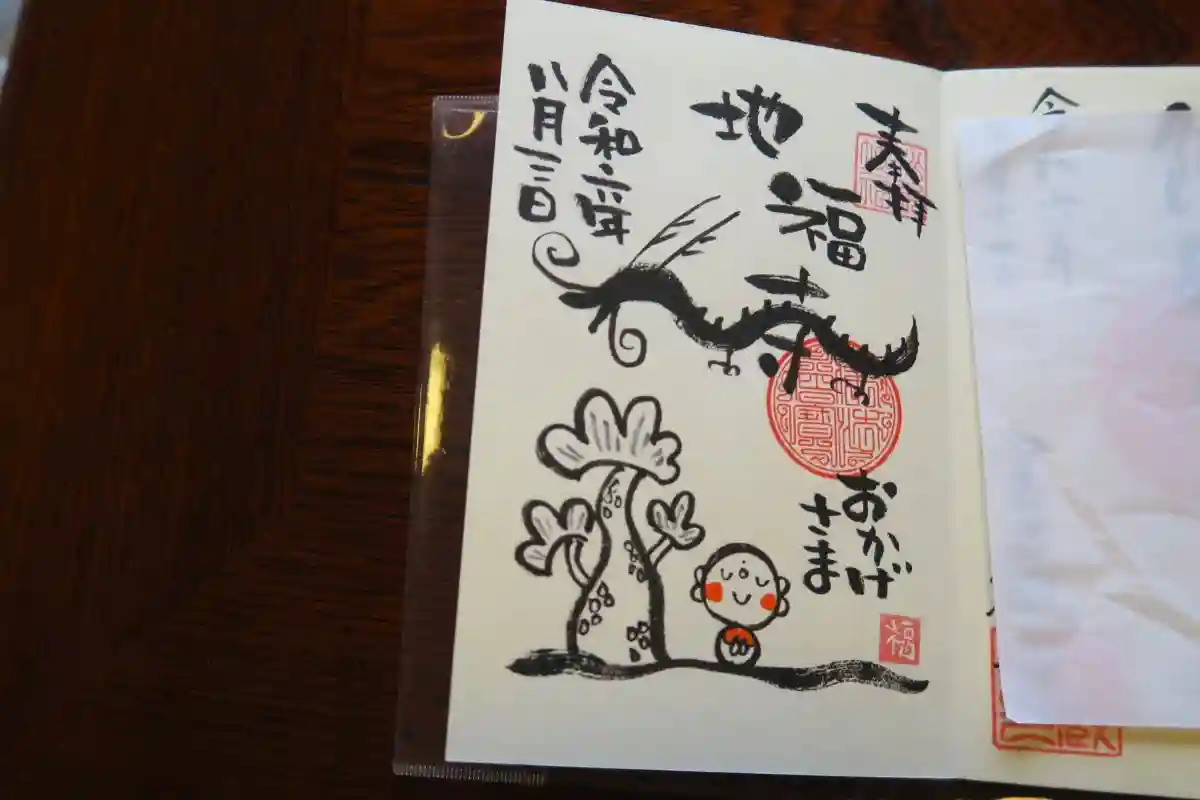 奉拝
地福寺
おかげ
さま
福
令和六年
八月三日
令